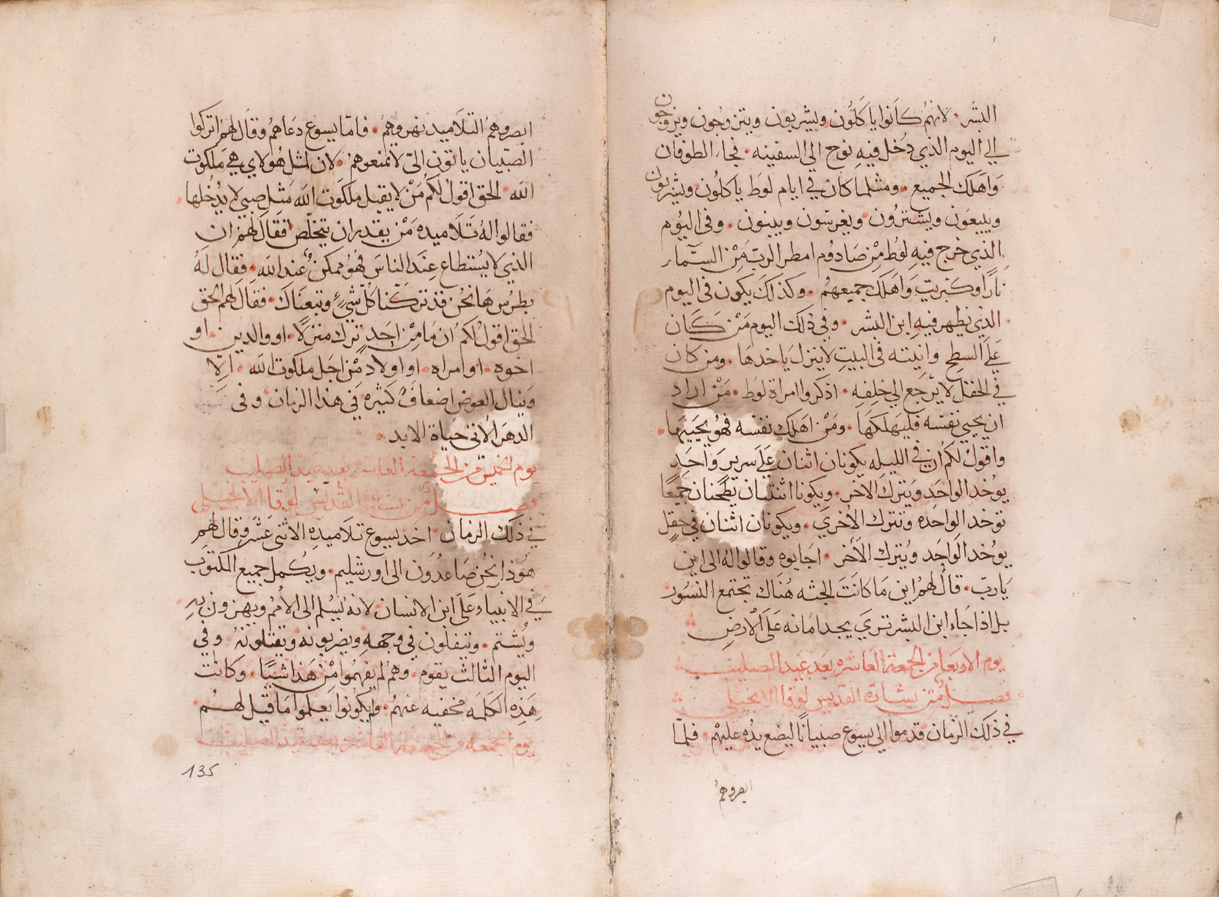 البشر · لانهم كانوا ياكلون ويشربون ويتزوجون ويزوجون
الي اليوم الذي دخل فيه نوح الى السفينه · فجاء الطوفان
واهلك الجميع · ومثلما كان في ايام لوط ياكلون ويشربون
ويبيعون ويشترون ويغرسون ويبنون · وفي اليوم
الذي خرج فيه لوط من صادوم امطر الرب من السماء
نارا وكبريت واهلك جميعهم · وكذلك يكون في اليوم
الذي يظهر فيه ابن البشر · وفي ذلك اليوم من كان
على السطح وانيته في البيت لا ينزل ياخدها · ومن كان
في الحقل لا يرجع الي خلفه · اذكروا امراة لوط · من اراد
ان يحيي نفسه فليهلكها · ومن اهلك نفسه فهو يحييها ·
واقول لكم ان في الليله يكونان اثنان على سرير واحد
يوخد الواحد ويترك الاخر · ويكونا اثنتان يطحنان جميعا
توخد الواحده وتترك الاخري · ويكونان اثنان في حقل
يوخد الواحد ويترك الاخر · اجابوه وقالوا له الى اين
يارب · قال لهم اين ما كانت الجثه هناك تجتمع النسور
بل اذا جاء ابن البشر تري يجد امانه على الارض
يوم الاربعا من الجمعة العاشره بعد عيد الصليب
فصل من بشارة القديس لوقا الانجيلي
في ذلك الزمان قدموا الي يسوع صبيانا ليضع يده عليهم · فلما
ابصروهم
ابصروهم التلاميد نهروهم · فاما يسوع دعاهم وقال لهم اتركوا
الصبيان ياتون الي لا تمنعوهم · لان لمثل هولاي هي ملكوت
الله · الحق اقول لكم من لا يقبل ملكوت الله مثل صبي لا يدخلها ·
فقالوا له تلاميده من يقدر ان يتخلص فقال لهم ان
الذي لا يستطاع عند الناس فهو ممكن عند الله · فقال له
بطرس ها نحن قد تركنا كل شي وتبعناك · فقال لهم الحق
الحق اقول لكم ان ما من احد ترك منزلا · او والدين · او
اخوه · او امراه · او اولاد من اجل ملكوت الله · الا
وينال العوض اضعاف كثيره في هذا الزمان · وفي
الدهر الاتي حياة الابد ·
يوم الخميس من الجمعة العاشره بعد عيد الصليب
فصل من بشارة القديس لوقا الانجيلي
في ذلك الزمان · اخد يسوع تلاميده الاثنى عشر وقال لهم
هوذا نحن صاعدون الى اورشليم · ويكمل جميع المكتوب
في الانبياء على ابن الانسان · لانه يسلم الى الامم ويهزون به
ويشتم · ويتفلون في وجهه ويضربونه ويقتلونه · وفي
اليوم الثالث يقوم · وهم لم يفهموا من هذا شيا · وكانت
هذه الكلمه مخفيه عنهم · ولم يكونوا يعلموا ما قيل لهم ·
يوم الجمعه من الجمعة العاشره بعد عيد الصليب
135